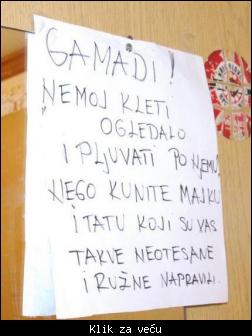 GAMADI !
NEMOJ KLETI
OGLEDALO
I PLJUVATI PO NJEMU,
NEGO KUNITE MAJKU
I TATU KOJI SU VAS
TAKVE NEOTESANE
I RUŽNE NAPRAVILI.
Klik za veću